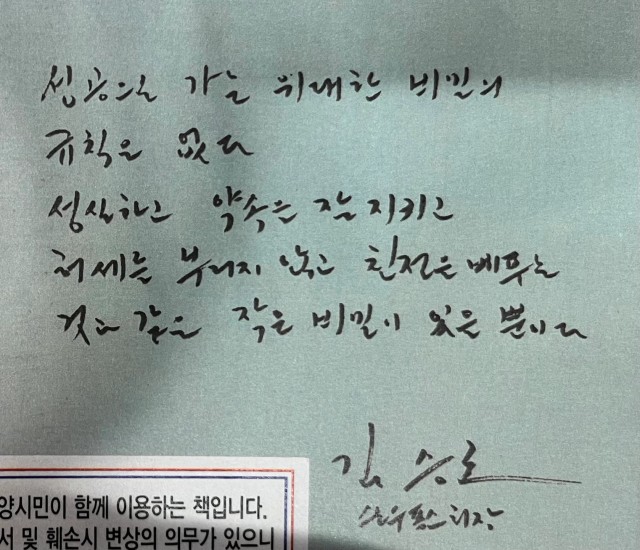 성공으로 가는 위대한 비밀의
규칙은 없다
성실하고 약속은 잘 지키고
허세를 부리지 않고 친절을 베푸는
것과 같은 작은 비밀이 있을 뿐이다
김승호
스노우폭스 회장
양시민이 함께 이용하는 책입니다.
서 및 훼손시 변상의 의무가 있으니